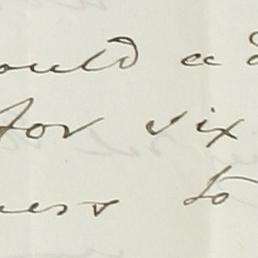 ould a d
for six
ness to